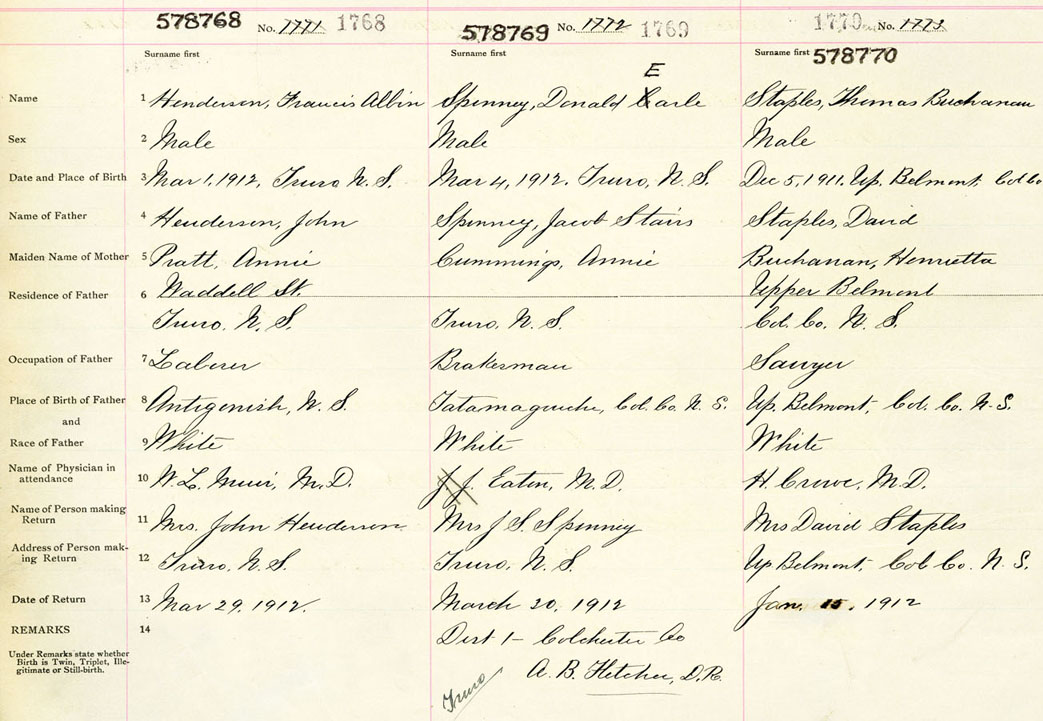 578768 No. 1771 1768 578769 No. 1772 1769 1770 No. 1773
Surname first Surname first Surname first 578770
E
Name 1 Henderson, Francis Albin Spenney, Donald Earle Staples, Thomas Buchanan
Sex 2 Male Male Male
Date and Place of Birth 3 Mar 1, 1912, Truro N.S. Mar 4, 1912. Truro, N.S. Dec 5, 1911. Up. Belmont, Col Co
Name of Father 4 Henderson, John Spenney, Jacob Stairs Staples, David
Maiden Name of Mother 5 Pratt, Annie Cummings, Annie Buchanan, Henrietta
Residence of Father 6 Waddell St. Upper Belmont
Truro, N.S. Truro, N.S. Col. Co. N.S.
Occupation of Father 7 Laberer Brakesman Sawyer
Place of Birth of Father 8 Antigonish, N.S. Tatamagouche, Col. Co. N.S. Up. Belmont, Col. Co. N.S.
and
Race of Father 9 White White White
Name of Physician in attendance 10 W. L. Muir, M.D. J. J. Eaton, M.D. H. Crowe, M.D.
Name of Person making Return 11 Mrs. John Henderson Mrs J. S. Spenney Mrs David Staples
Address of Person making Return 12 Truro, N.S. Truro, N.S. Up Belmont, Col. Co. N.S.
Date of Return 13 Mar 29, 1912. March 20, 1912 Jan. 15, 1912
REMARKS 14 Dist 1 - Colchester Co
Under Remarks state whether
Birth is Twin, Triplet, Ille-
gitimate or Still-birth.
A. B. Fletcher, D.R.
Truro